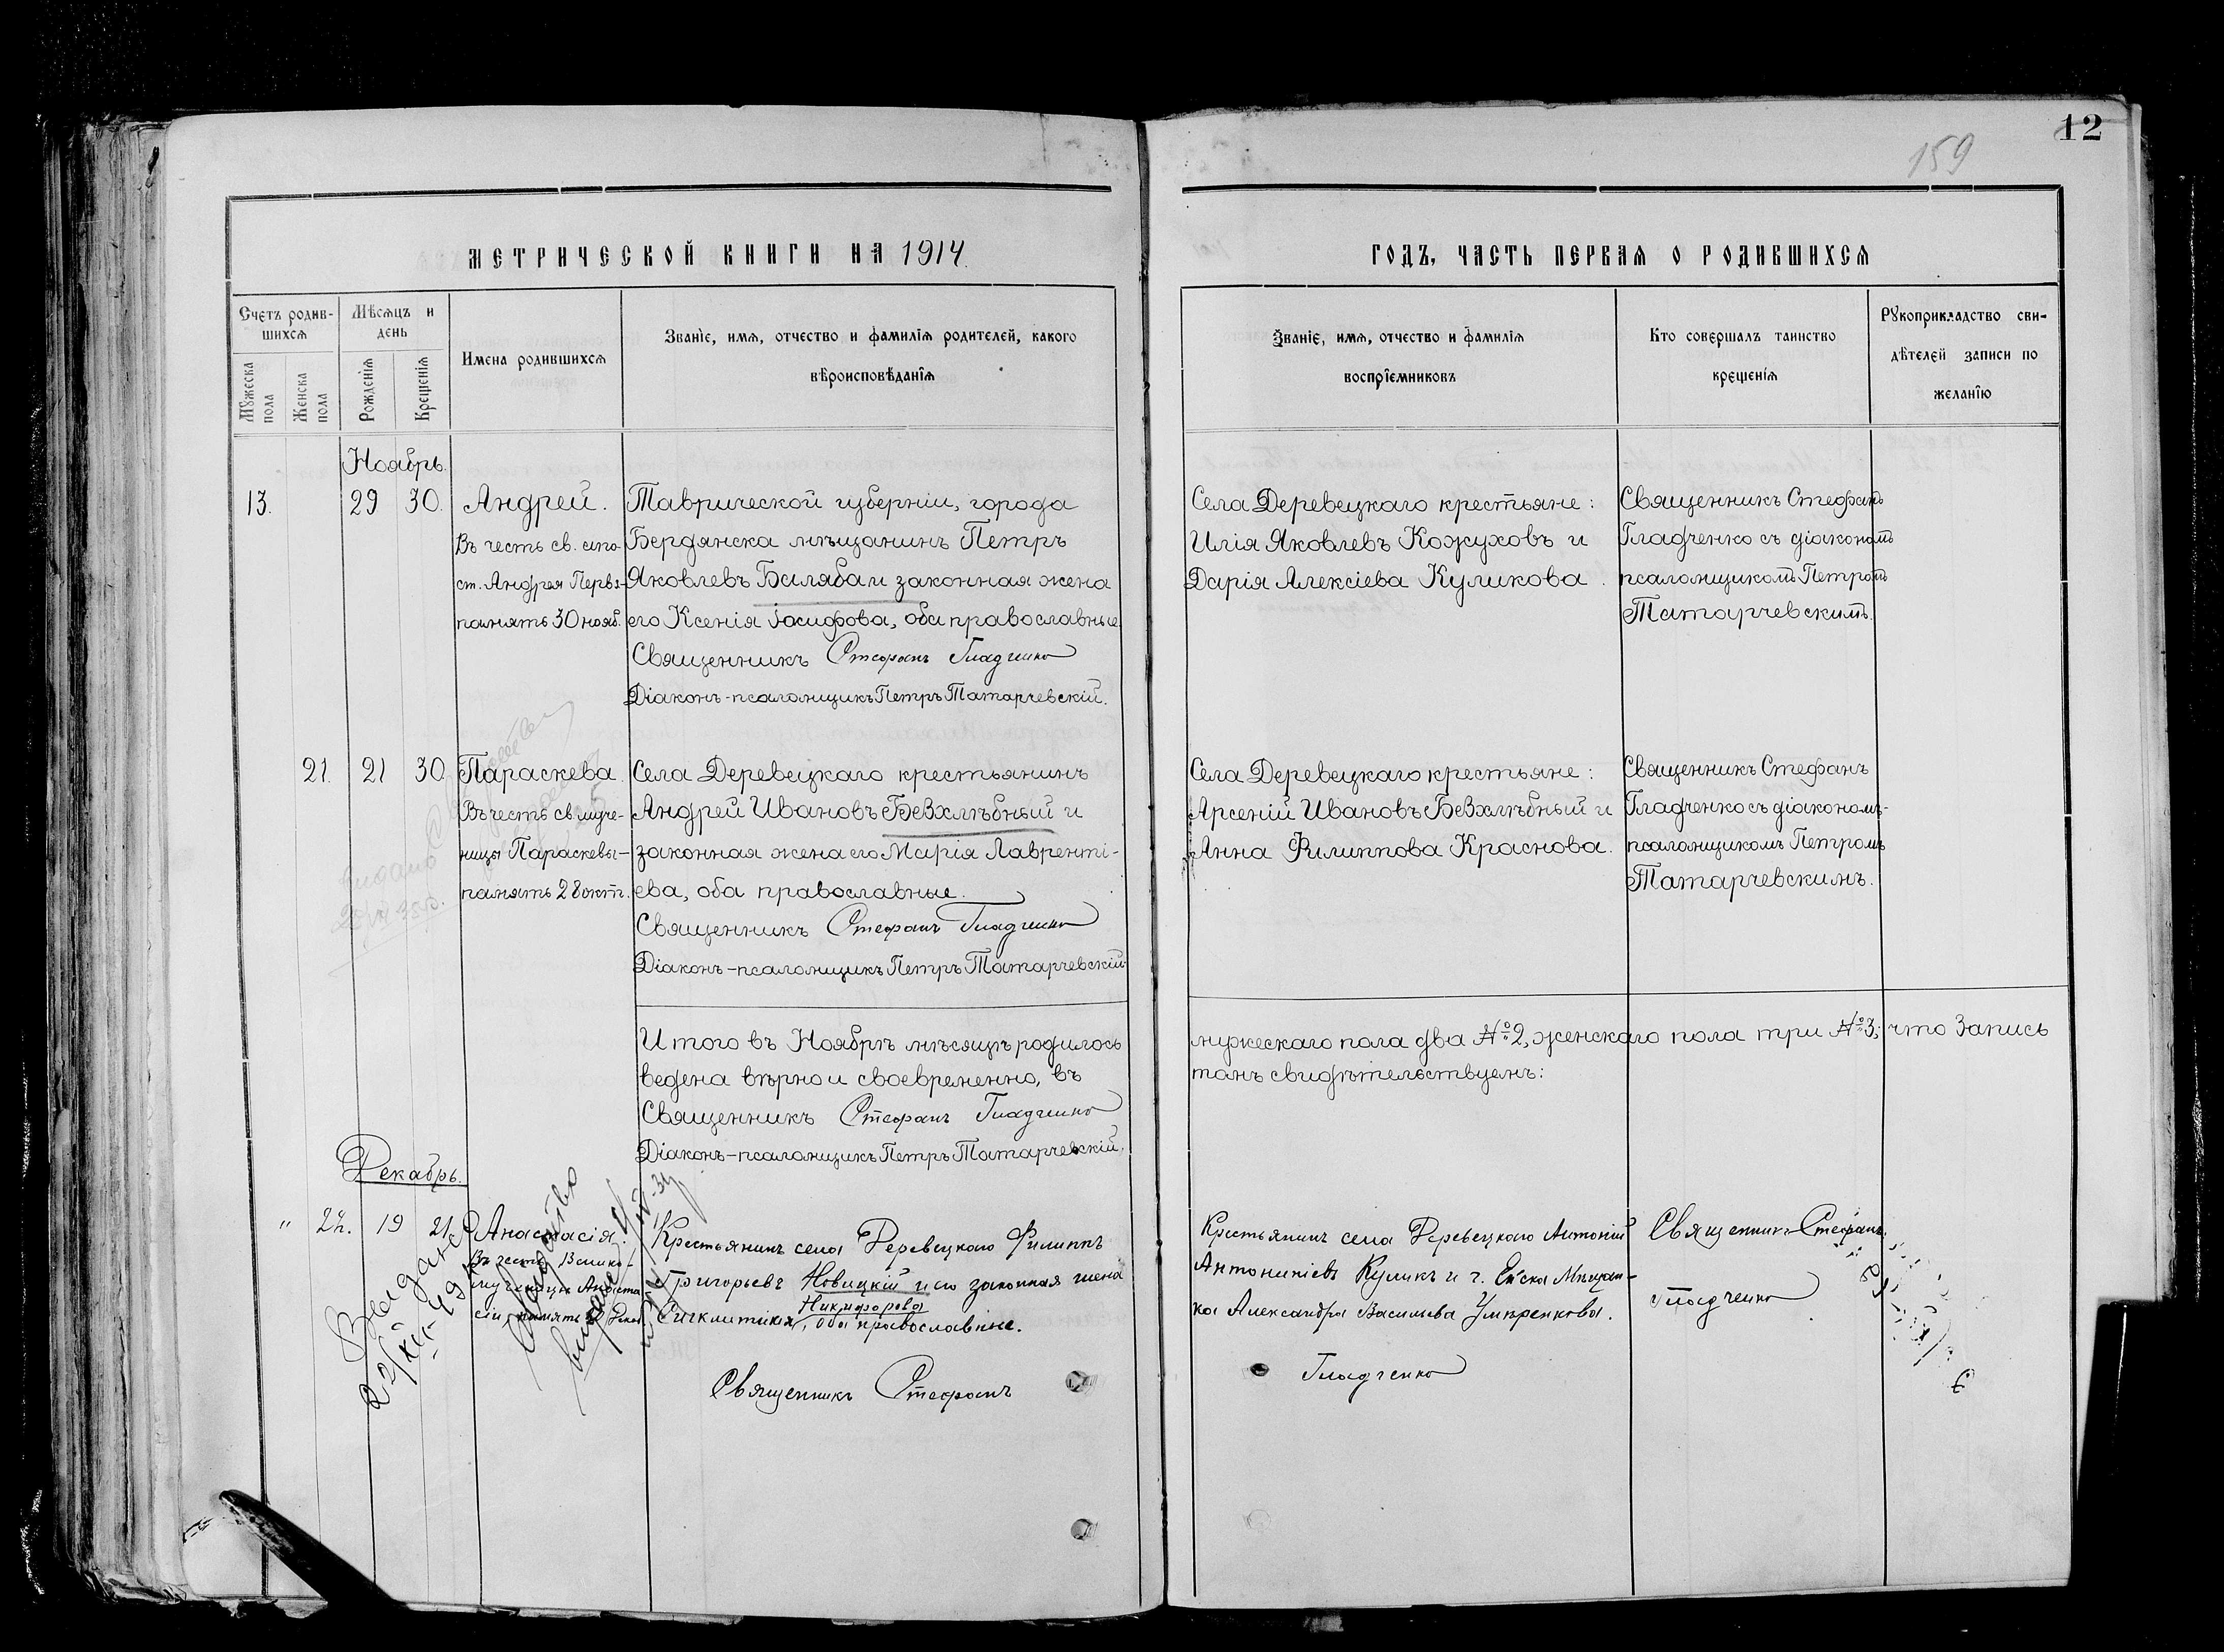 12
159
МЕТРИЧЕСКОЙ КНИГИ НА 1914.
ГОДЪ, ЧАСТЬ ПЕРВАЯ О РОДИВШИХСЯ
Счетъ родив-
шихся
Мѣсяцъ и
день
Мужеска
пола
Женска
пола
Рожденія
Крещенія
Имена родившихся
Званіе, имя, отчество и фамилія родителей, какого
вѣроисповѣданія
Званіе, имя, отчество и фамилія
воспріемниковъ
Кто совершалъ таинство
крещенія
Рукоприкладство сви-
дѣтелей записи по
желанію
Ноябрь.
13.
29
30.
Андрей.
Въ честь св. апо-
ст. Андрея Перво-
память 30 нояб.
Таврической губерніи, города
Бердянска мѣщанинъ Петръ
Яковлевъ Баляба и законная жена
его Ксенія Іосифова, оба православные
Священникъ Стефанъ Гладченко
Діаконъ-псаломщикъ Петръ Татарчевскій.
Села Деревецкаго крестьяне:
Илія Яковлевъ Кожуховъ и
Дарія Алексіева Куликова.
Священникъ Стефанъ
Гладченко съ діакономъ
псаломщикомъ Петромъ
Татарчевскимъ.
21.
21
30
Параскева.
Въ честь св. муче-
ницы Параскевы-
память 28 окт.
Села Деревецкаго крестьянинъ
Андрей Ивановъ Безхлѣбный и
законная жена его Марія Лавренті-
ева, оба православные.
Священникъ Стефанъ Гладченко
Діаконъ-псаломщикъ Петръ Татарчевскій.
Села Деревецкаго крестьяне:
Арсеній Ивановъ Безхлѣбный и
Анна Филиппова Краснова.
Священникъ Стефанъ
Гладченко съ діакономъ-
псаломщикомъ Петромъ
Татарчевскимъ.
Итого въ Ноябрѣ мѣсяцѣ родилось
ведена вѣрно и своевременно, въ
Священникъ Стефанъ Гладченко
Діаконъ-псаломщикъ Петръ Татарчевскій.
мужескаго пола два №2, женскаго пола три №3; что запись
томъ свидѣтельствуемъ:
Декабрь.
" 22. 19 21.
Анастасія.
Въ честь Велико-
мученицы Анаста-
сіи, память 22 Декаб.
Крестьянинъ села Деревецкаго Филиппъ
Григорьевъ Новицкій и его законная жена
Никифорова
Сигклитикія, оба православные.
Священникъ Стефанъ
Крестьянинъ села Деревецкаго Антоній
Антониніевъ Куликъ и г. Ейска Мѣщан-
ка Александра Васильева
Гладченко
Священникъ Стефанъ
Гладченко